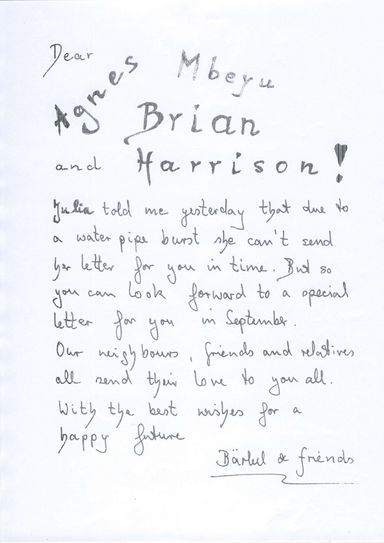 Dear
Agnes Mbeyu
Brian
and Harrison!
Julia told me yesterday that due to
a water pipe burst she can't send
her letter for you in time. But so
you can look forward to a special
letter for you in September.
Our neighbours, friends and relatives
all send their love to you all.
With the best wishes for a
happy future
Bärbel & friends